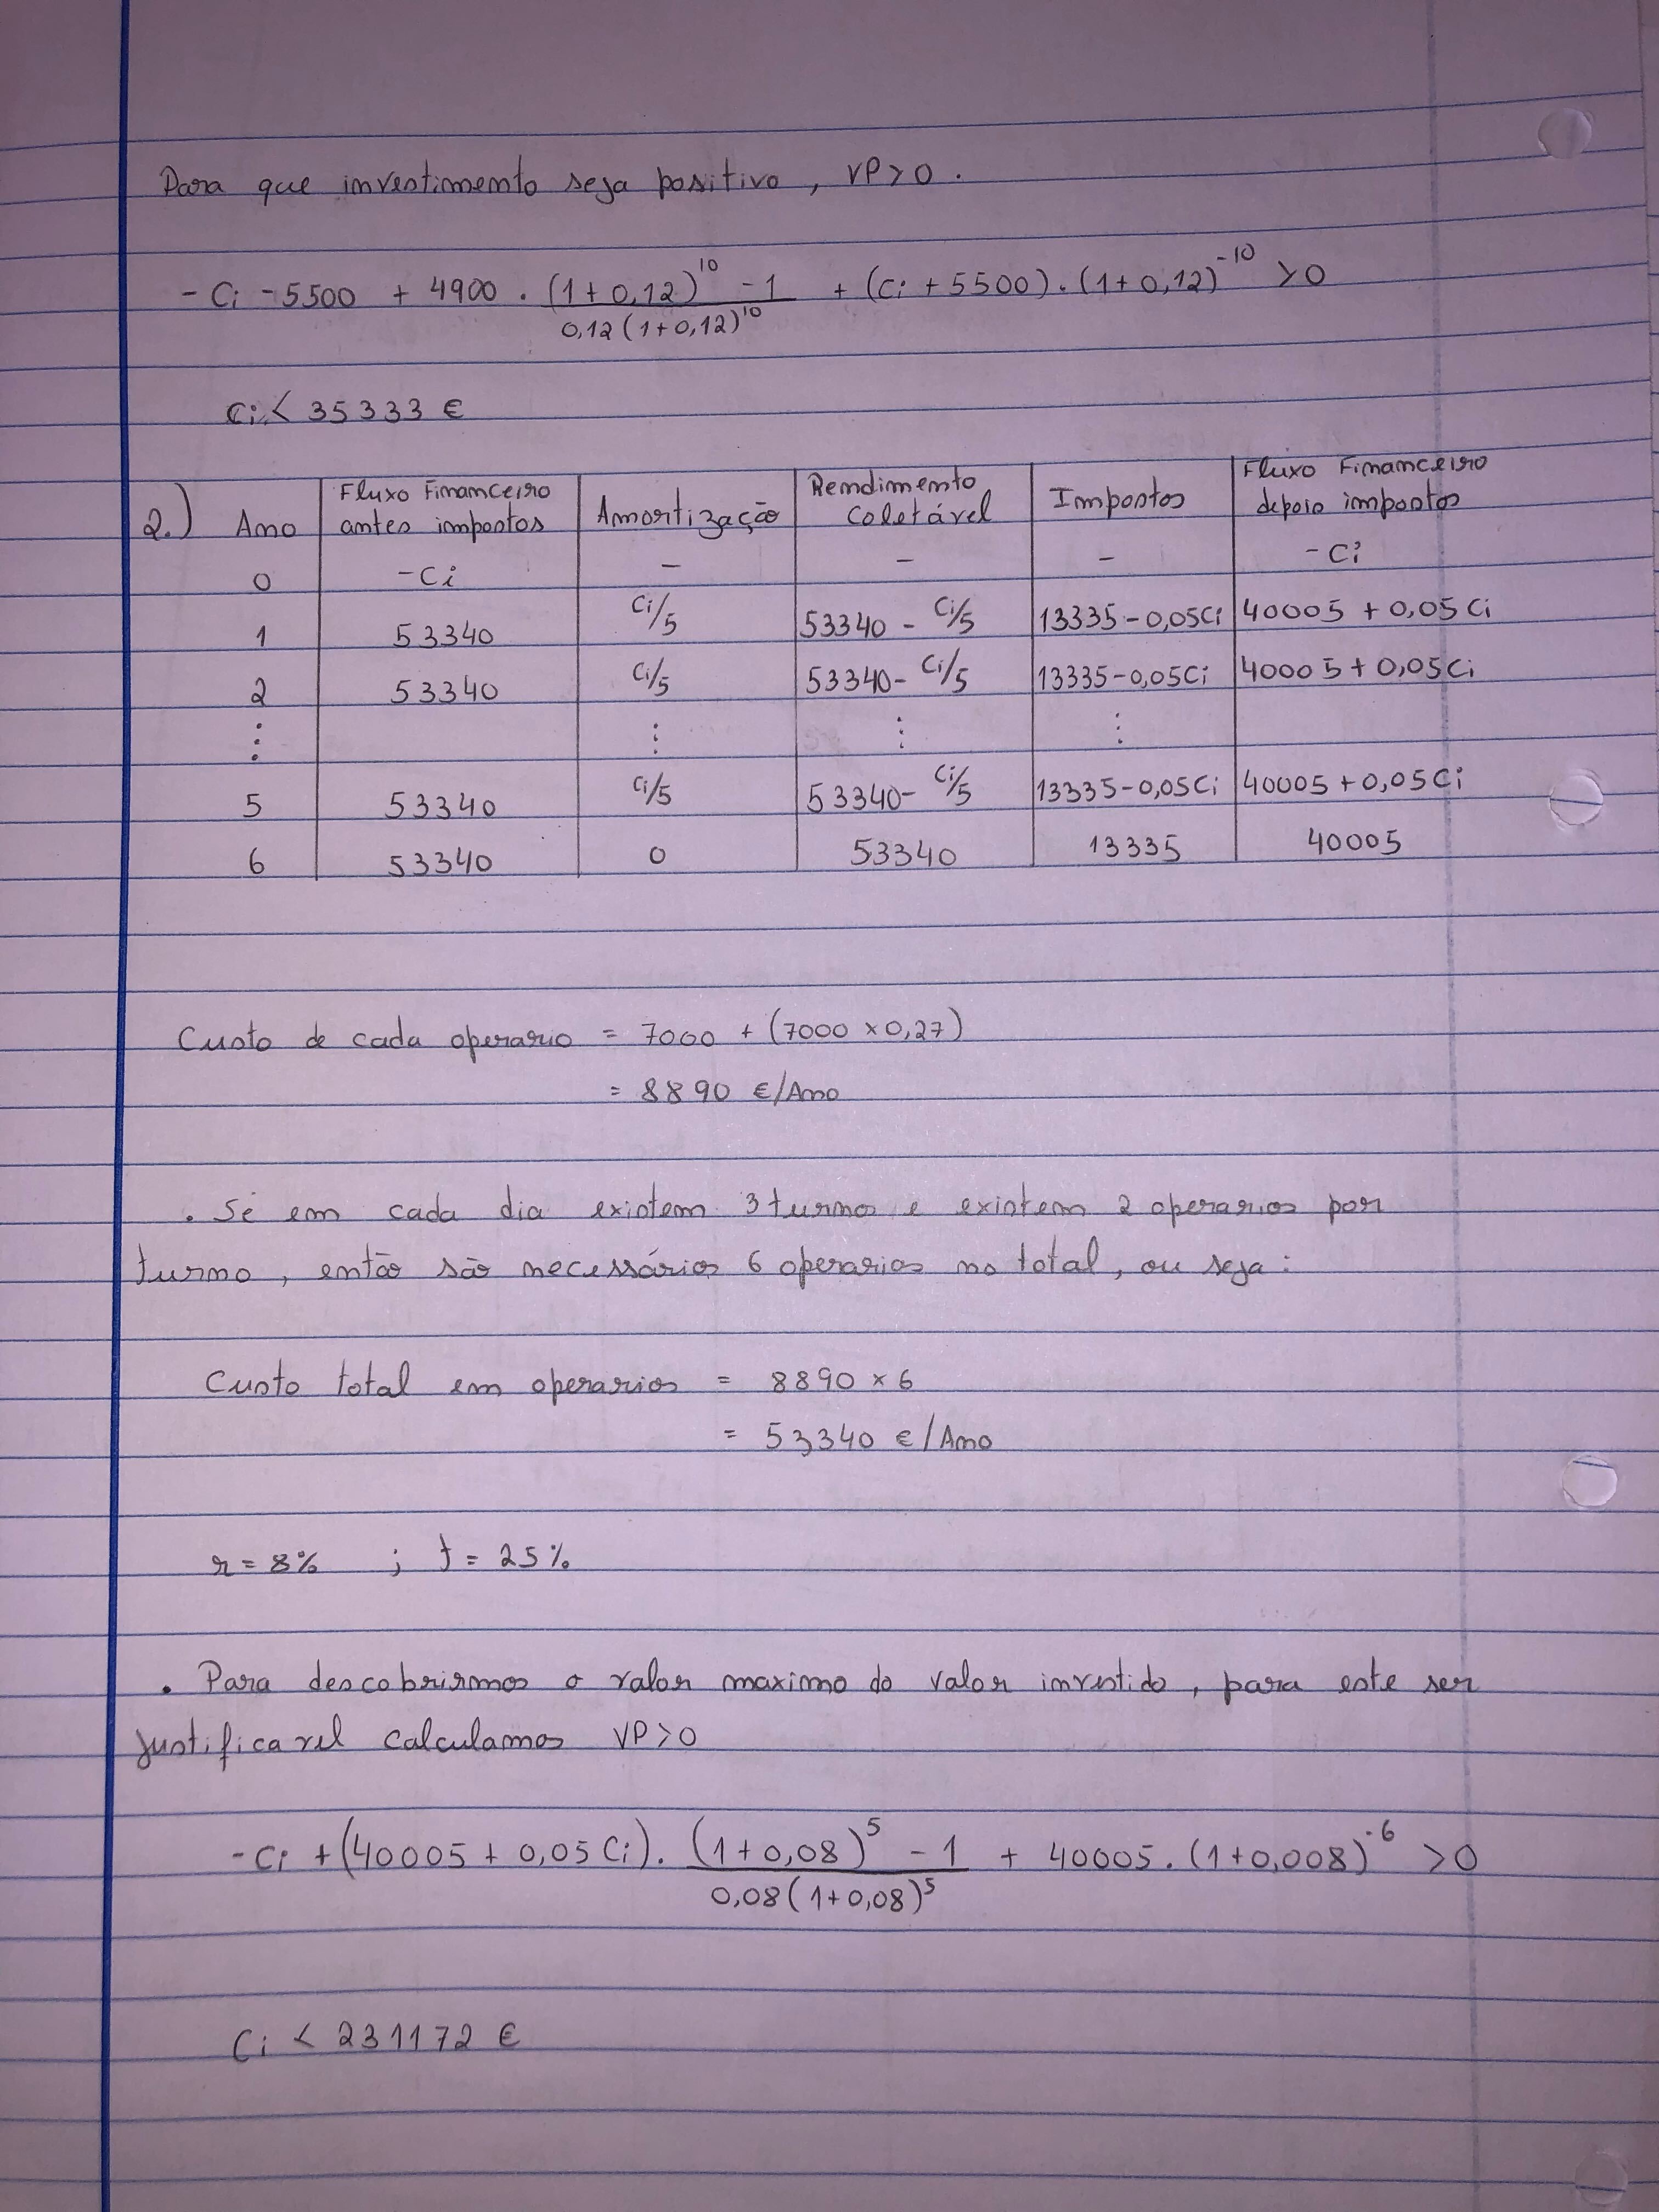 Para que investimento seja positivo, VP>0.
- Ci - 5500 + 4900 . ((1+0,12)^10 - 1) / (0,12(1+0,12)^10) + (Ci + 5500).(1+0,12)^-10 >0
Ci < 35333 €
2.) Ano | Fluxo Financeiro antes impostos | Amortização | Rendimento Coletável | Impostos | Fluxo Financeiro depois impostos
0 | -Ci | - | - | - | -Ci
1 | 53340 | Ci/5 | 53340 - Ci/5 | 13335-0,05Ci | 40005 + 0,05Ci
2 | 53340 | Ci/5 | 53340- Ci/5 | 13335-0,05Ci | 40005+0,05Ci
⋮ | | ⋮ | ⋮ | ⋮ |
5 | 53340 | Ci/5 | 53340- Ci/5 | 13335-0,05Ci | 40005+0,05Ci
6 | 53340 | 0 | 53340 | 13335 | 40005
Custo de cada operario = 7000 + (7000 x 0,27)
= 8890 €/Ano
. Se em cada dia existem 3 turnos e existem 2 operarios por
turno, então são necessários 6 operarios no total, ou seja:
Custo total em operarios = 8890 x 6
= 53340 €/Ano
r = 8% ; t = 25%
. Para descobrirmos o valor maximo do valor investido, para este ser
justificavel calculamos VP>0
-Ci + (40005 + 0,05 Ci). ((1+0,08)^5 - 1) / (0,08(1+0,08)^5) + 40005.(1+0,008)^-6 >0
Ci < 231172 €